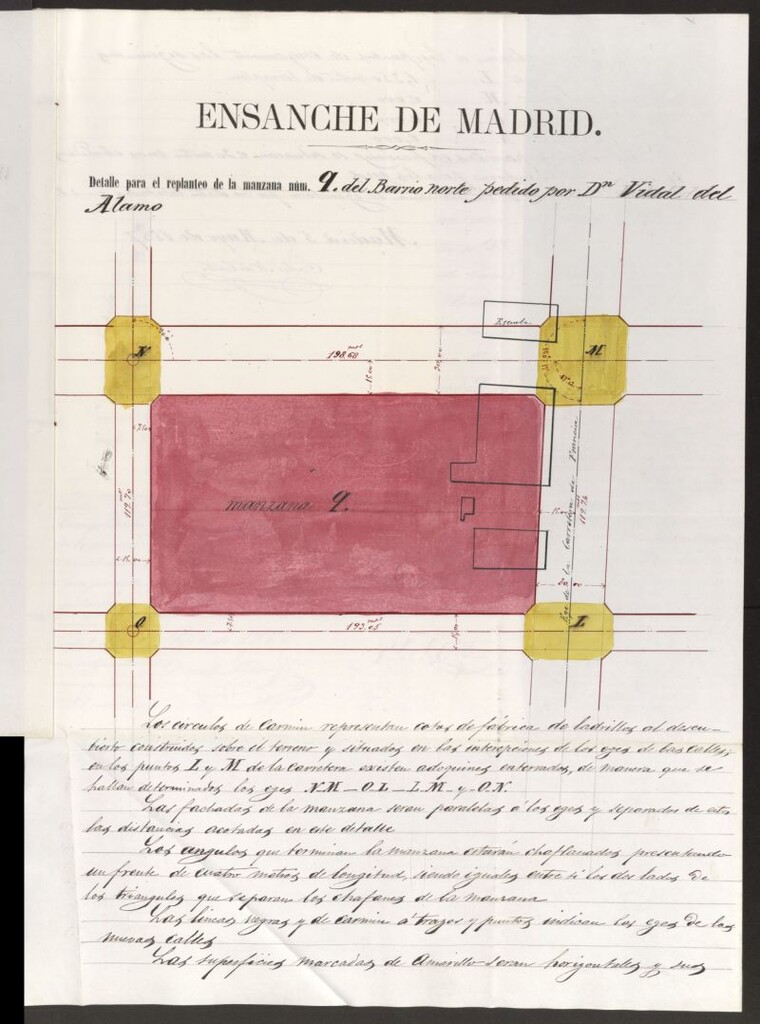 ENSANCHE DE MADRID.
Detalle para el replanteo de la manzana núm. 9. del Barrio norte pedido por Dn Vidal del
Alamo
Escuela
N
M
198,60
15,00
30,00
manzana 9.
119,70
15,00
Eje de la Carretera de Francia
119,74
15,00
30,00
O
L
7,50
193,05
15,00
Los circulos de Carmin representan cotas de fábrica de ladrillos al descu-
bierto construidos sobre el terreno y situados en las intercepciones de los ejes de las calles,
en los puntos L y M de la Carretera existen adoquines enterrados, de manera que se
hallan determinados los ejes N.M-O.L-L.M-y-O.N.
Las fachadas de la manzana seran paralelas á los ejes y separadas de estos
las distancias acotadas en este detalle
Los angulos que terminan la manzana estarán chaflanados presentando
un frente de cuatro metros de longitud, siendo iguales entre si los dos lados de
los triangulos que separan los chafanes de la manzana
Las lineas negras y de carmin a trazos y puntos indican los ejes de las
nuevas calles
Las superficies marcadas de Amarillo seran horizontales y sus